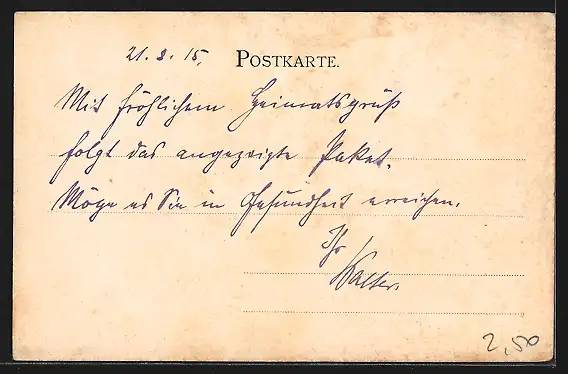 21.8.15.
POSTKARTE.
Mit fröhlichem Heimatsgruß
folgt das angezeigte Paket.
Möge es Sie in Gesundheit erreichen.
Ihr
Walter.
2,50